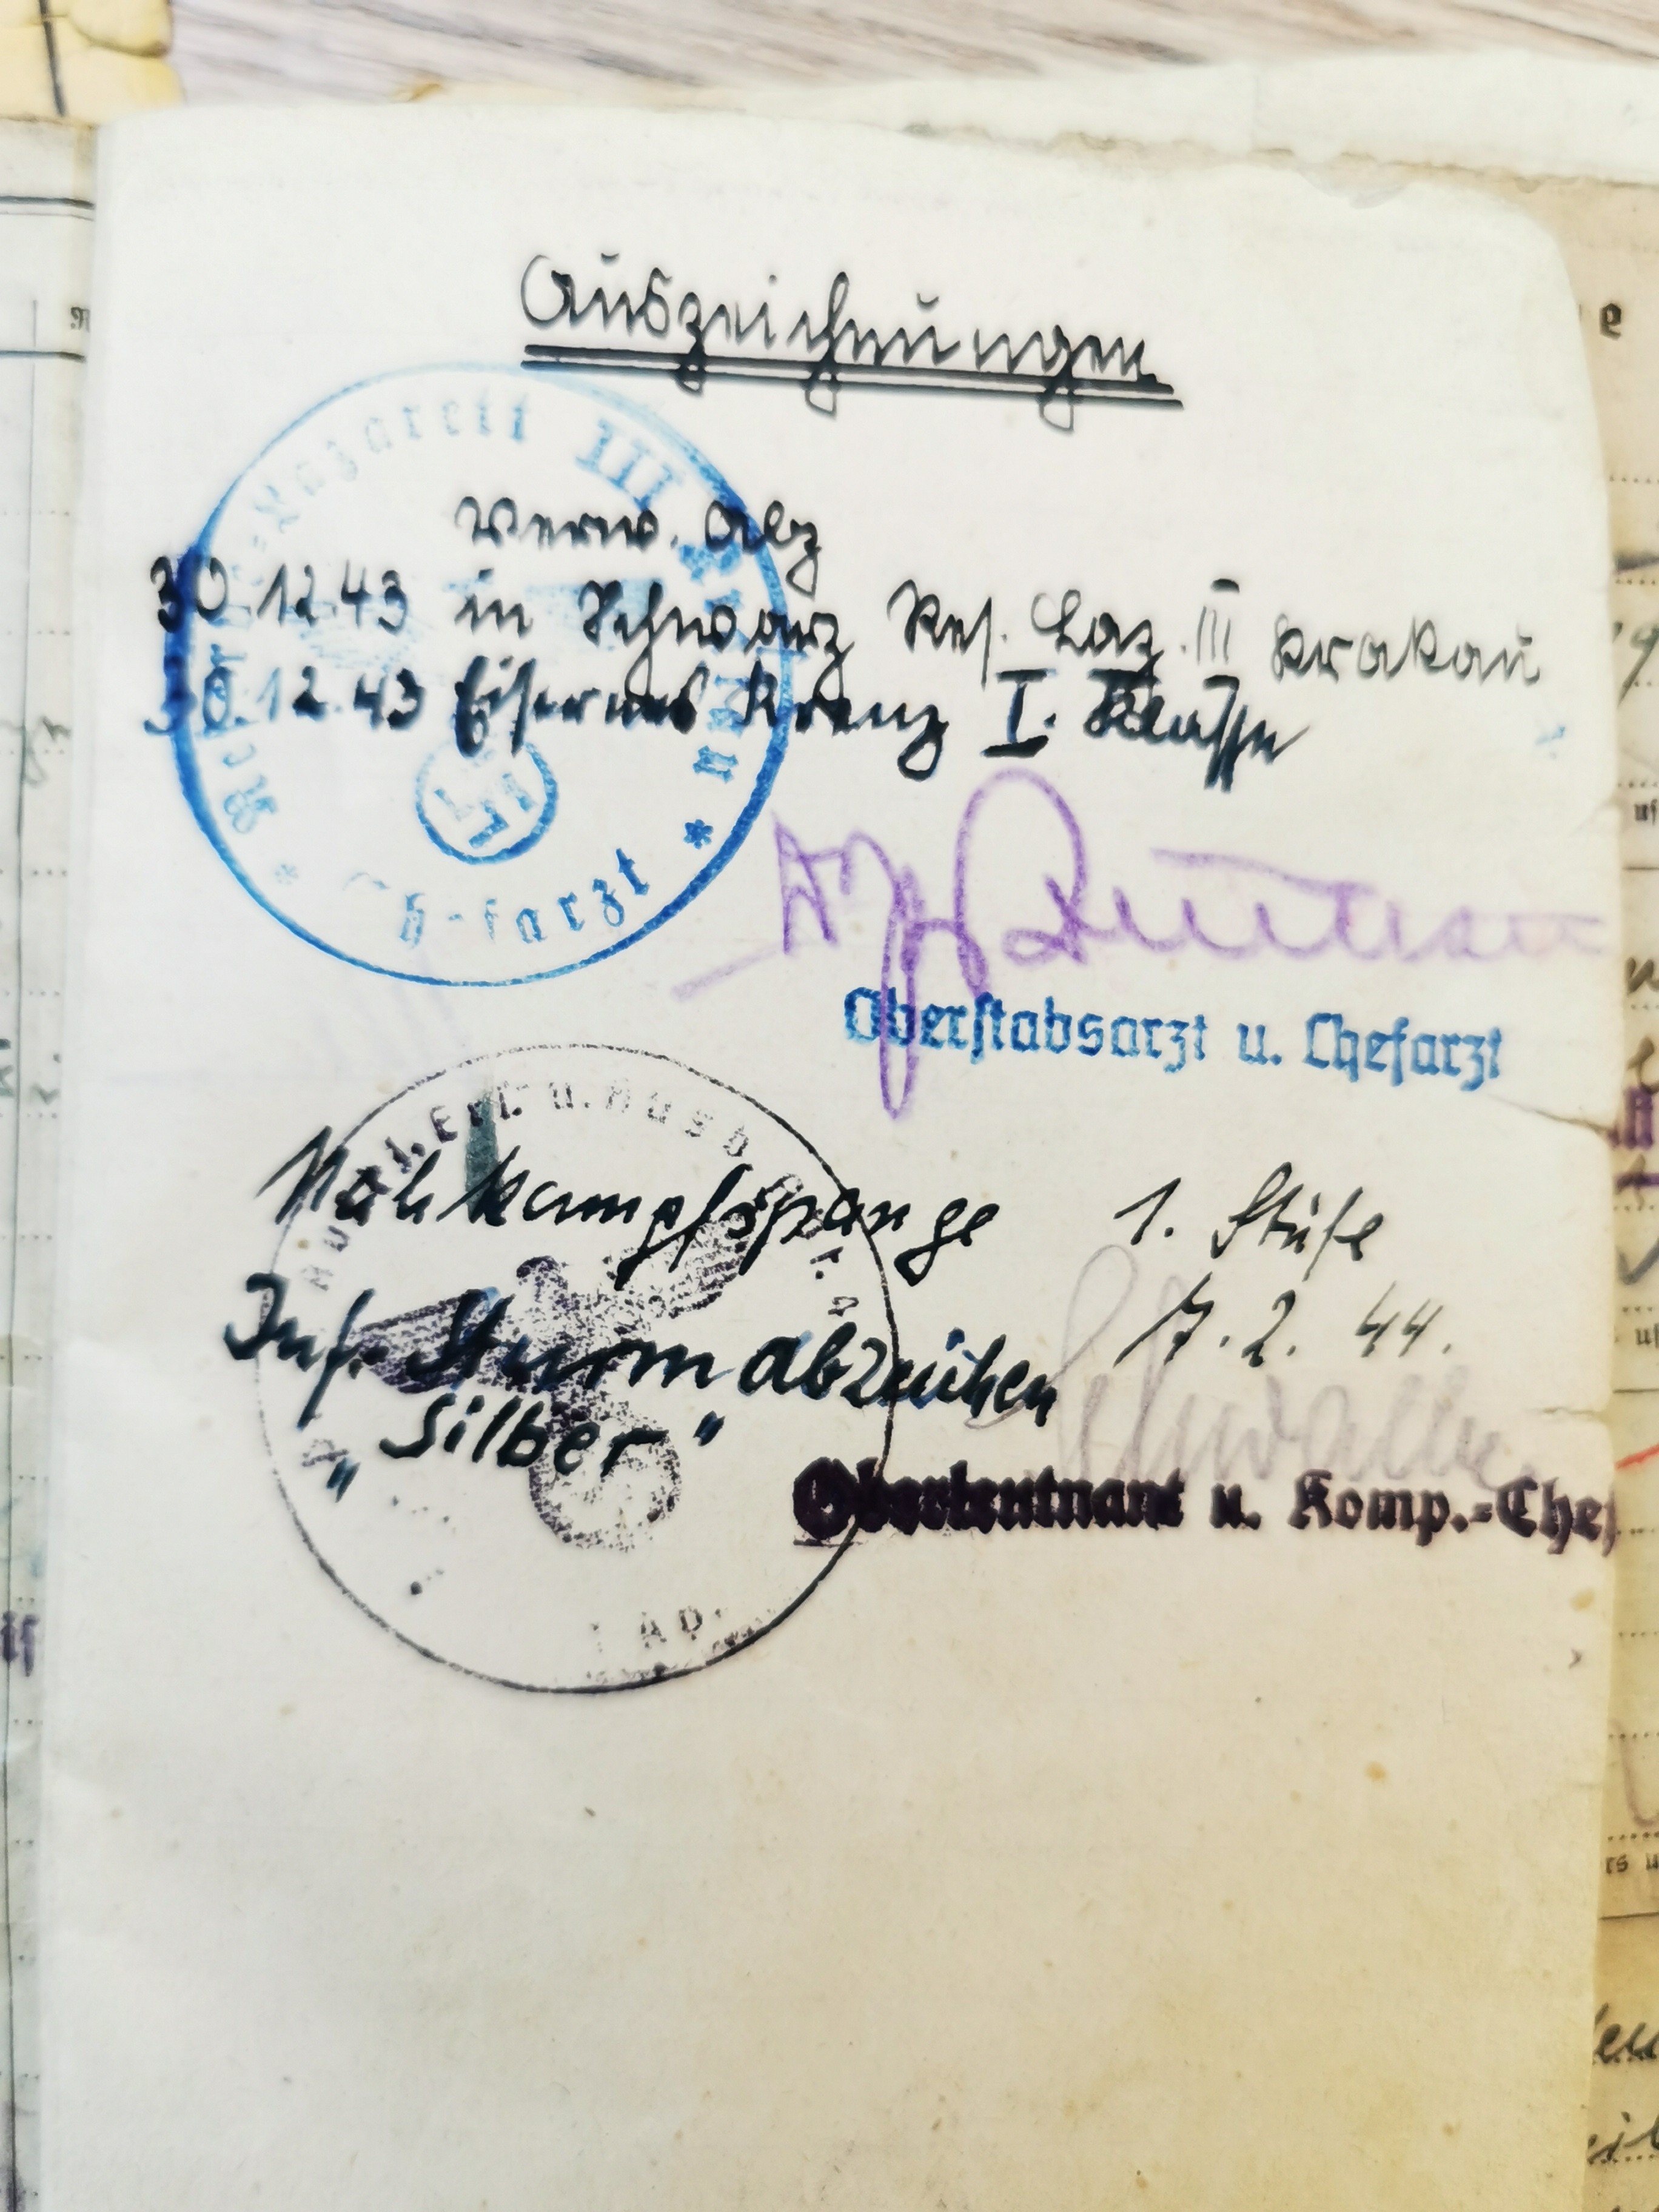 Auszeichnungen
Verw. Abz
30.12.43 in Schwarz Res. Laz. III Krakau
30.12.43 Eisernes Kreuz I. Klasse
Oberstabsarzt u. Chefarzt
Nahkampfspange 1. Stufe
Inf. Sturmabzeichen 17.2.44.
„Silber"
Oberleutnant u. Komp.-Chef